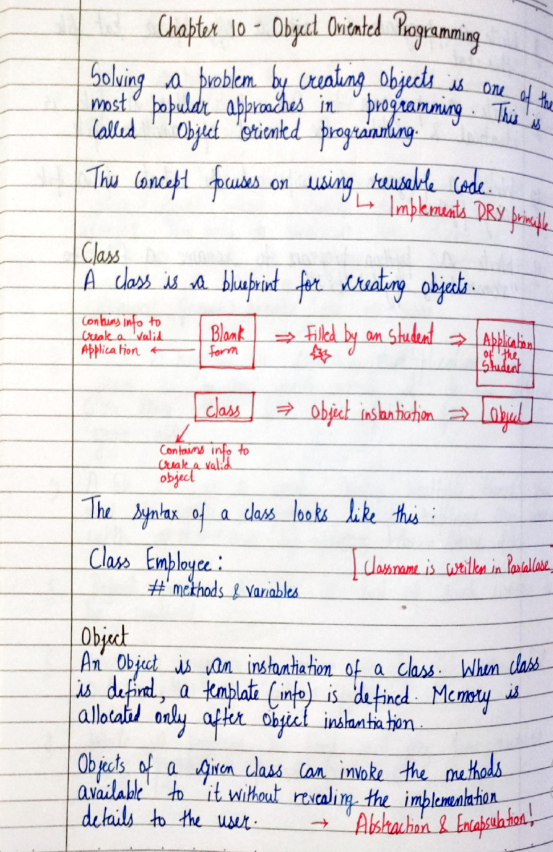 Chapter 10 - Object Oriented Programming
Solving a problem by creating objects is one of the
most popular approaches in programming. This is
called Object oriented programming.
This concept focuses on using reusable code.
↳ Implements DRY principle
Class
A class is a blueprint for creating objects.
Contains info to
Create a valid
Application ←
Blank
form
⇒ Filled by an Student ⇒
Application
of the
Student
class ⇒ Object instantiation ⇒ Object
Contains info to
Create a valid
object
The syntax of a class looks like this :
Class Employee :
[ Classname is written in PascalCase
# methods & variables
Object
An Object is an instantiation of a class. When class
is defind, a template (info) is defined. Memory is
allocated only after object instantiation.
Objects of a given class can invoke the methods
available to it without revealing the implementation
details to the user. → Abstraction & Encapsulation!